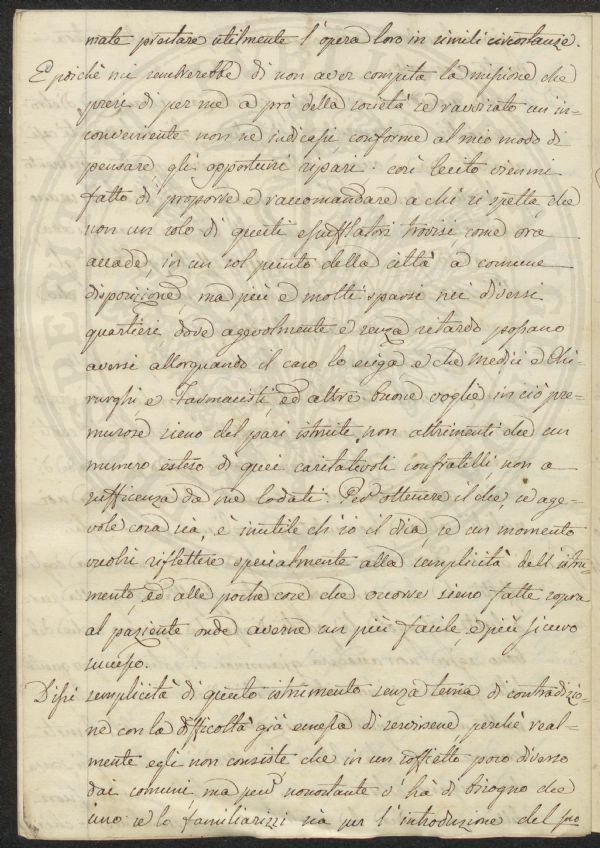 mate prestare utilmente l'opera loro in simili circostanze.
E poichè mi sembrerebbe di non aver compita la missione che
presi di per me a prò della società se ravvisato un in=
conveniente non ne indicassi, conforme al mio modo di
pensare, gli opportuni ripari: così lecito viemmi
fatto di proporre e raccomandare a chi si spetta, che
non un solo di questi esufflatori trovisi, come ora
accade, in un sol punto della città a comune
disposizione, ma più e molti sparsi nei diversi
quartieri dove agevolmente e senza ritardo possano
aversi allorquando il caso lo esiga e che Medici e Chi=
rurghi, e Farmacisti, ed altre buone voglie in ciò pre=
murose sieno del pari istruite, non altrimenti che un
numero esteso di quei caritatevoli confratelli, non a
sufficenza da me lodati. Per ottenere il che, se age=
vole cosa sia, è inutile ch'io il dica, se un momento
vuolsi riflettere specialmente alla semplicità dell'istru=
mento, ed alle poche cose che occorre sieno fatte sopra
al paziente onde averne un più facile, e più sicuro
successo.
Dissi semplicità di questo istrumento senza tema di contradizio=
ne con la difficoltà già emessa di servirsene, perchè real=
mente egli non consiste che in un soffietto poco diverso
dai comuni, ma però nonostante v'hà di bisogno che
uno se lo familiarizzi sia per l'introduzione del suo